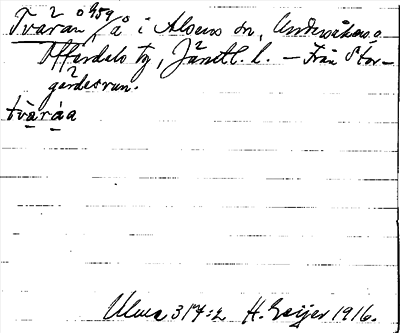 Tvärån å i Alsens sn, Undersåkers o.
Offerdals tg, Jämtl. l. — Från Stor-
gärdesrun.
tväråa
Ulma 314:2 H. Geijer 1916.